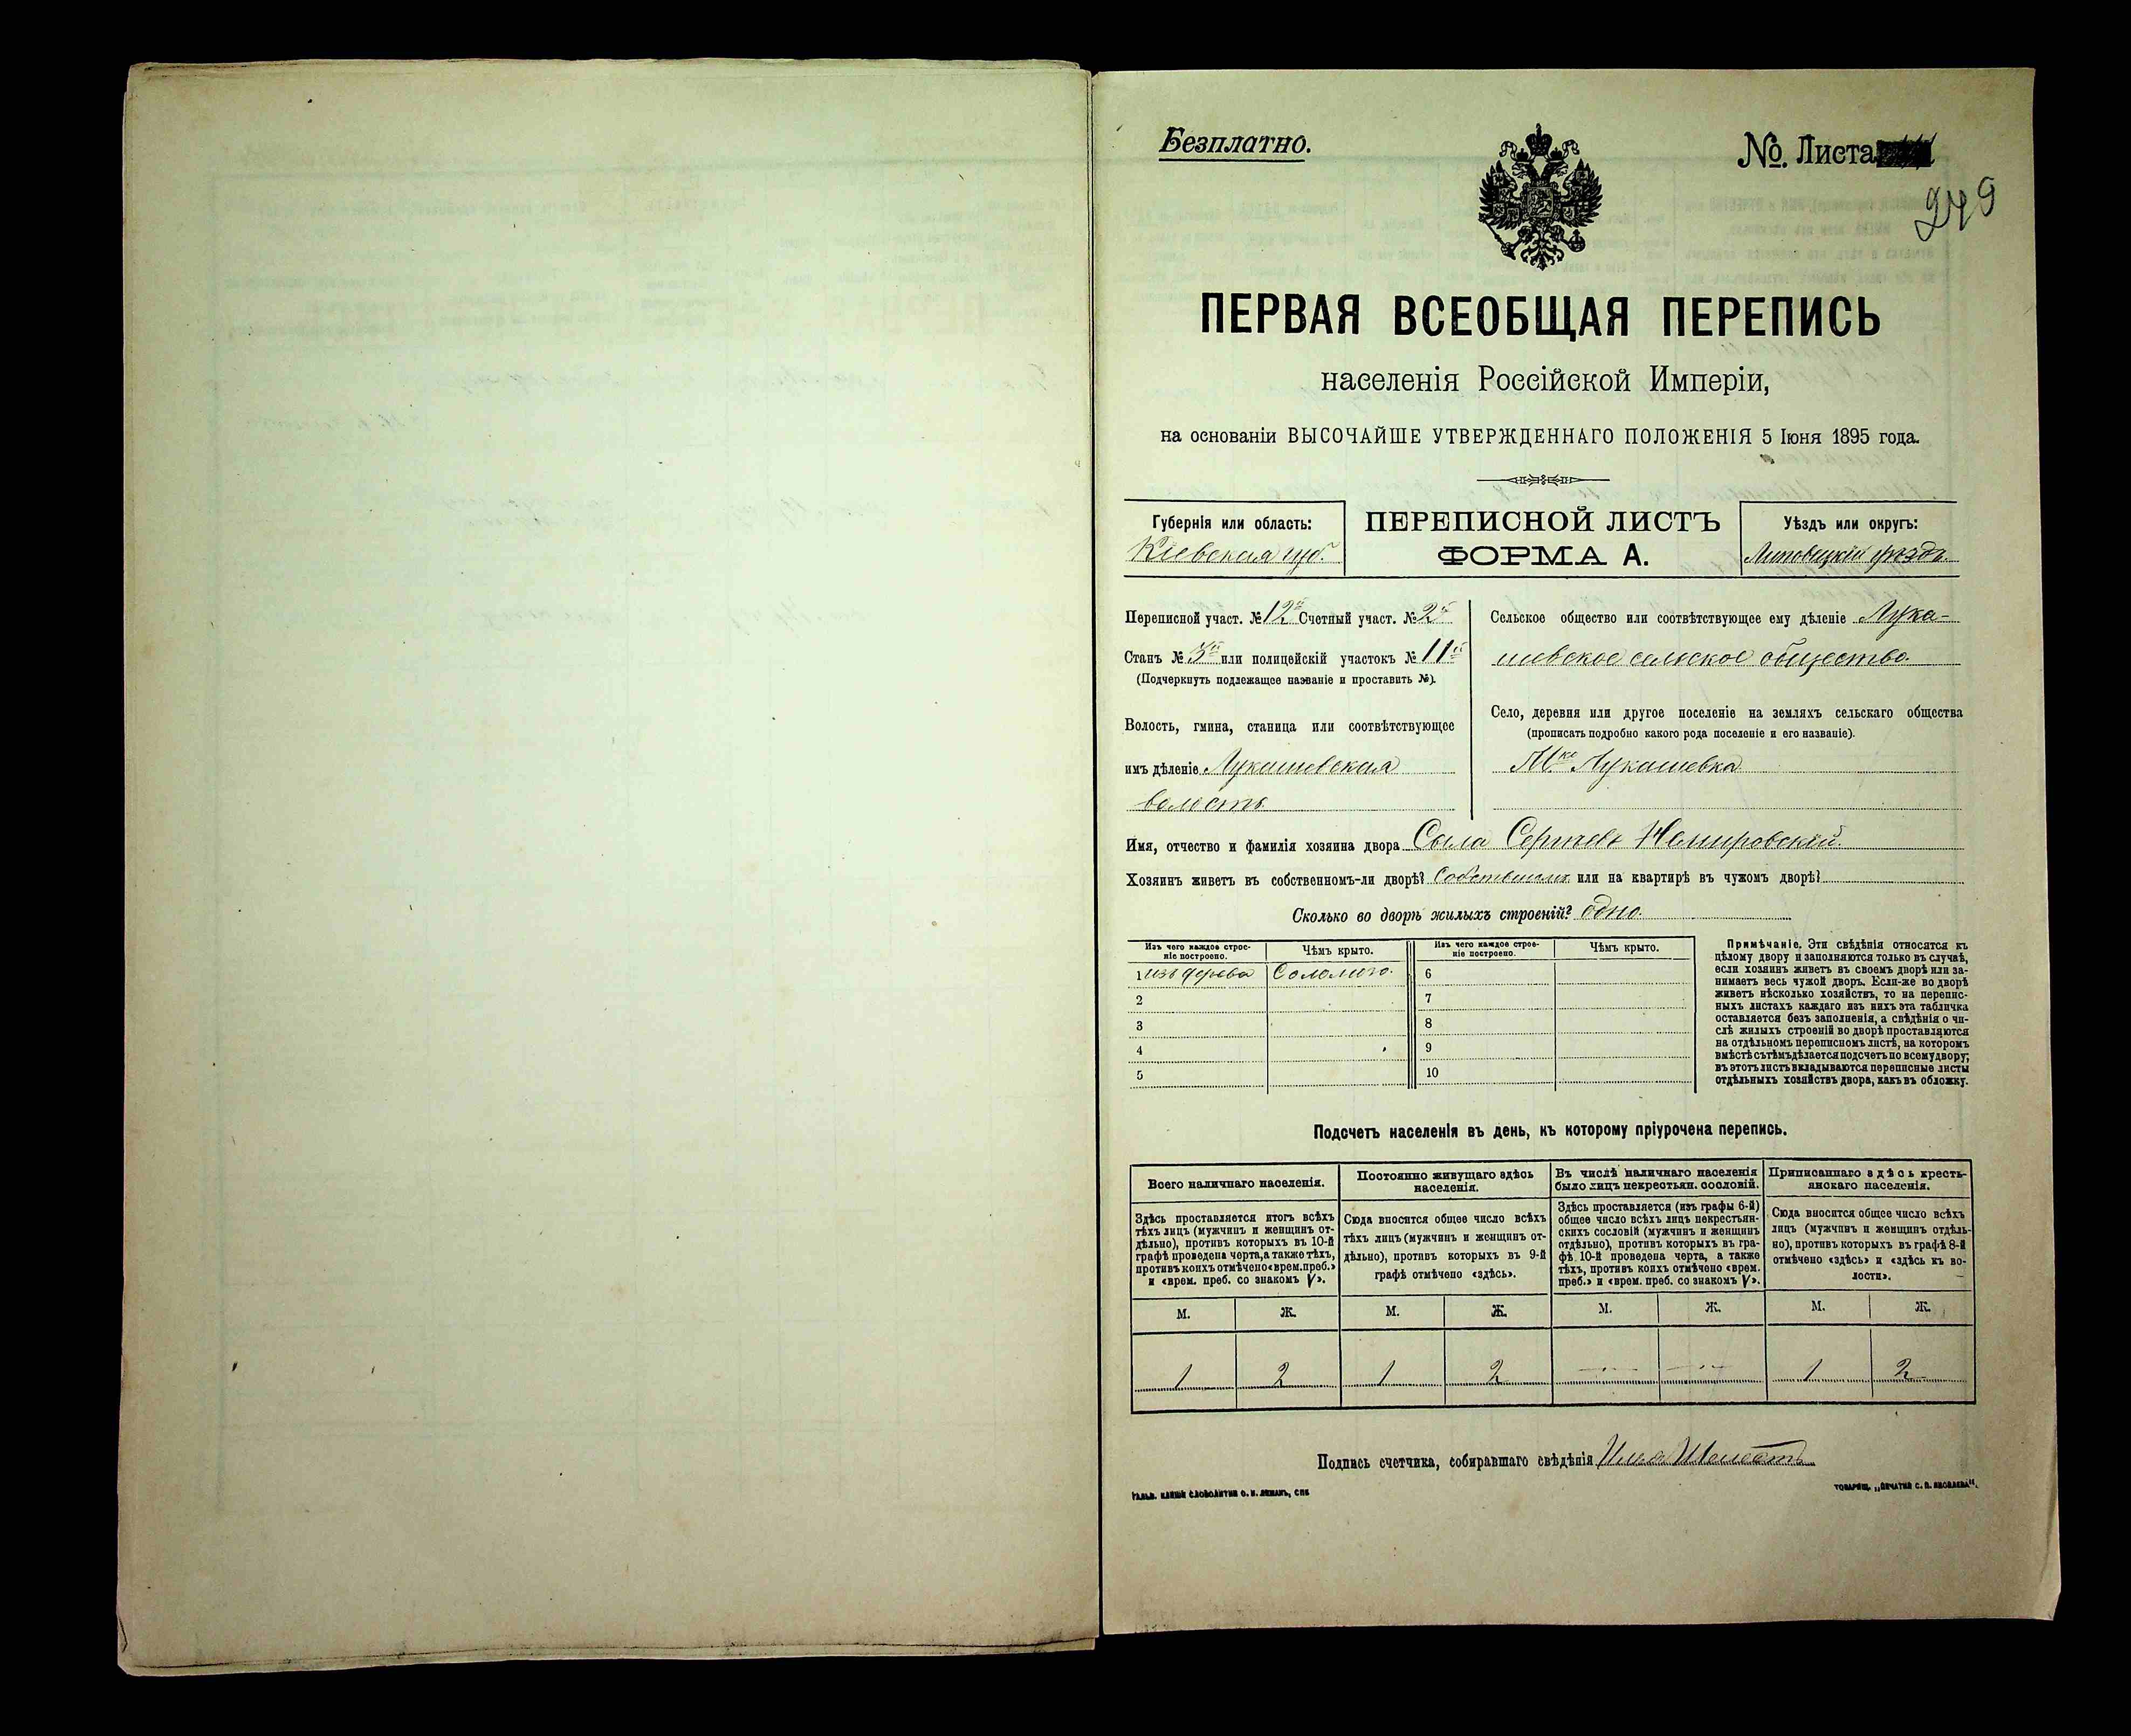 Безплатно.
№. Листа
249
ПЕРВАЯ ВСЕОБЩАЯ ПЕРЕПИСЬ
населенія Россійской Имперіи,
на основаніи ВЫСОЧАЙШЕ УТВЕРЖДЕННАГО ПОЛОЖЕНІЯ 5 Іюня 1895 года.
Губернія или область:
Кіевская губ.
ПЕРЕПИСНОЙ ЛИСТЪ
ФОРМА А.
Уѣздъ или округъ:
Липовецкій уѣздъ
Переписной участ. № 12й Счетный участ. № 2й
Станъ № 3й или полицейскій участокъ № 11й
(Подчеркнуть подлежащее названіе и проставить №).
Волость, гмина, станица или соотвѣтствующее
имъ дѣленіе Лукашевская
волость
Сельское общество или соотвѣтствующее ему дѣленіе Лука-
шевское сельское общество.
Село, деревня или другое поселеніе на земляхъ сельскаго общества
(прописать подробно какого рода поселеніе и его названіе).
М.ко Лукашевка
Имя, отчество и фамилія хозяина двора Сыла Сергѣевъ Немировскій.
Хозяинъ живетъ въ собственномъ-ли дворѣ? Собственномъ или на квартирѣ въ чужомъ дворѣ?
Сколько во дворѣ жилыхъ строеній? одно.
Изъ чего каждое строе-
ніе построено.
Чѣмъ крыто.
Изъ чего каждое строе-
ніе построено.
Чѣмъ крыто.
1 изъ дерева Соломою. 6
2 7
3 8
4 9
5 10
Примѣчаніе. Эти свѣдѣнія относятся къ
цѣлому двору и заполняются только въ случаѣ,
если хозяинъ живетъ въ своемъ дворѣ или за-
нимаетъ весь чужой дворъ. Если-же во дворѣ
живетъ нѣсколько хозяйствъ, то на перепис-
ныхъ листахъ каждаго изъ нихъ эта табличка
оставляется безъ заполненія, а свѣдѣнія о чи-
слѣ жилыхъ строеній во дворѣ проставляются
на отдѣльномъ переписномъ листѣ, на которомъ
вмѣстѣ съ тѣмъ дѣлается подсчетъ по всему двору;
въ этотъ листъ вкладываются переписные листы
отдѣльныхъ хозяйствъ двора, какъ въ обложку.
Подсчетъ населенія въ день, къ которому пріурочена перепись.
Всего наличнаго населенія.
Здѣсь проставляется итогъ всѣхъ
тѣхъ лицъ (мужчинъ и женщинъ от-
дѣльно), противъ которыхъ въ 10-й
графѣ проведена черта, а также тѣхъ,
противъ коихъ отмѣчено «врем. преб.»
и «врем. преб. со знакомъ V».
Постоянно живущаго здѣсь
населенія.
Сюда вносится общее число всѣхъ
тѣхъ лицъ (мужчинъ и женщинъ от-
дѣльно), противъ которыхъ въ 9-й
графѣ отмѣчено «здѣсь».
Въ числѣ наличнаго населенія
было лицъ некрестьян. сословій.
Здѣсь проставляется (изъ графы 6-й)
общее число всѣхъ лицъ некрестьян-
скихъ сословій (мужчинъ и женщинъ
отдѣльно), противъ которыхъ въ гра-
фѣ 10-й проведена черта, а также
тѣхъ, противъ коихъ отмѣчено «врем.
преб.» и «врем. преб. со знакомъ V».
Приписаннаго здѣсь кресть-
янскаго населенія.
Сюда вносится общее число всѣхъ
лицъ (мужчинъ и женщинъ отдѣль-
но), противъ которыхъ въ графѣ 8-й
отмѣчено «здѣсь» и «здѣсь къ во-
лости».
М. Ж. М. Ж. М. Ж. М. Ж.
1 2 1 2 — — 1 2
Подпись счетчика, собиравшаго свѣдѣнія
ГАЛЬВ. КЛИШЕ СЛОВОЛИТНИ О. И. ЛЕМАНЪ, СПБ
ТОВАРИЩ. „ПЕЧАТНЯ С. П. ЯКОВЛЕВА".